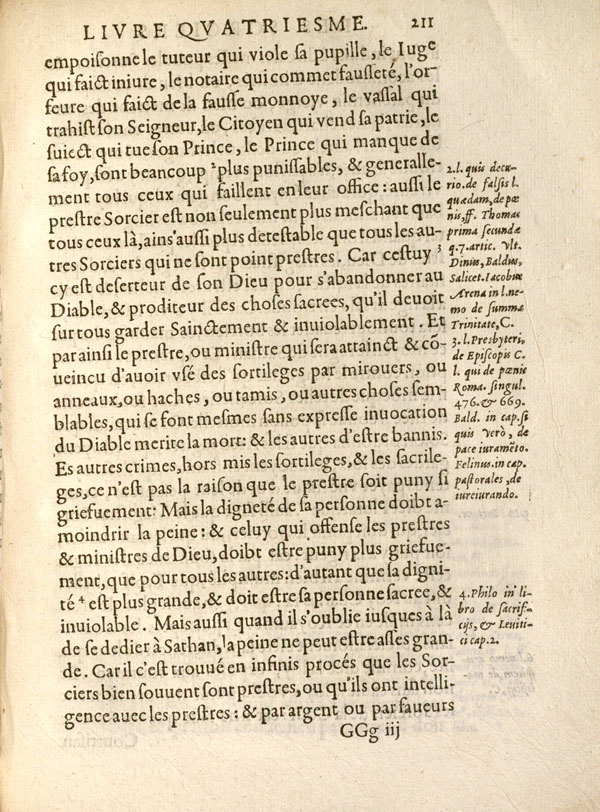 LIVRE QVATRIESME. 211
empoisonne le tuteur qui viole sa pupille, le Iuge
qui faict iniure, le notaire qui commet fausseté, l'or-
feure qui faict de la fausse monnoye, le vassal qui
trahist son Seigneur, le Citoyen qui vend sa patrie, le
suiect qui tue son Prince, le Prince qui manque de
sa foy, sont beaucoup ² plus punissables, & generalle-
ment tous ceux qui faillent en leur office: aussi le
prestre Sorcier est non seulement plus meschant que
tous ceux là, ains aussi plus detestable que tous les au-
tres Sorciers qui ne sont point prestres. Car cestuy ³
cy est deserteur de son Dieu pour s'abandonner au
Diable, & proditeur des choses sacrees, qu'il deuoit
sur tous garder Sainctement & inuiolablement. Et
par ainsi le prestre, ou ministre qui sera attainct & cō-
ueincu d'auoir vsé des sortileges par mirouers, ou
anneaux, ou haches, ou tamis, ou autres choses sem-
blables, qui se font mesmes sans expresse inuocation
du Diable merite la mort: & les autres d'estre bannis.
Es autres crimes, hors mis les sortileges, & les sacrile-
ges, ce n'est pas la raison que le prestre soit puny si
griefuement: Mais la digneté de sa personne doibt a-
moindrir la peine: & celuy qui offense les prestres
& ministres de Dieu, doibt estre puny plus griefue-
ment, que pour tous les autres: d'autant que sa digni-
té ⁴ est plus grande, & doit estre sa personne sacree, &
inuiolable. Mais aussi quand il s'oublie iusques à là
de se dedier à Sathan, la peine ne peut estre asses gran-
de. Car il c'est trouué en infinis procés que les Sor-
ciers bien souuent sont prestres, ou qu'ils ont intelli-
gence auec les prestres: & par argent ou par faueurs
GGg iij
2. l. quis decu-
rio. de falsis l.
quædam, de pœ
nis, ff. Thomas
prima secundæ
q. 7. artic. vlt.
Dinus, Baldus,
Salicet. Iacobus
Arena in l. ne-
mo de summa
Trinitate, C.
3. l. Presbyteri,
de Episcopis C.
l. qui de pœnis
Roma. singul.
476. & 669.
Bald. in cap. si
quis verò, de
pace iuramēto.
Felinus. in cap.
pastorales, de
iureiurando.
4. Philo in li-
bro de sacrif-
cijs, & Leuiti-
ci cap. 2.